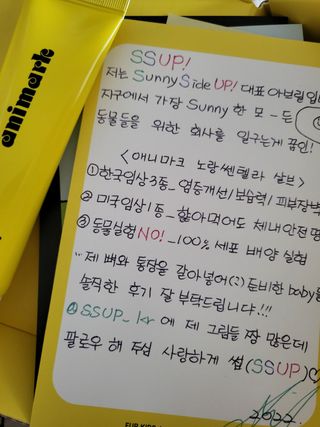 animark
SSUP!
저는 Sunny Side UP! 대표 아보릴입
지구에서 가장 Sunny 한 모-든
동물들을 위한 회사를 일구는게 꿈인!
<애니마크 노랑쎈텔라 살브>
①한국임상3종_염증개선/보습력/피부장벽
②미국임상1종_핥아먹어도 체내안전
③동물실험NO!_100% 세포 배양 실험
제 뼈와 통장을 갈아넣어(:) 준비한 baby들
솔직한 후기 잘 부탁드립니다!!!
SSUP_kr 에 제 그림들 짱 많은데
팔로우 해 주심 사랑하게 썹(SSUP)♡
2022